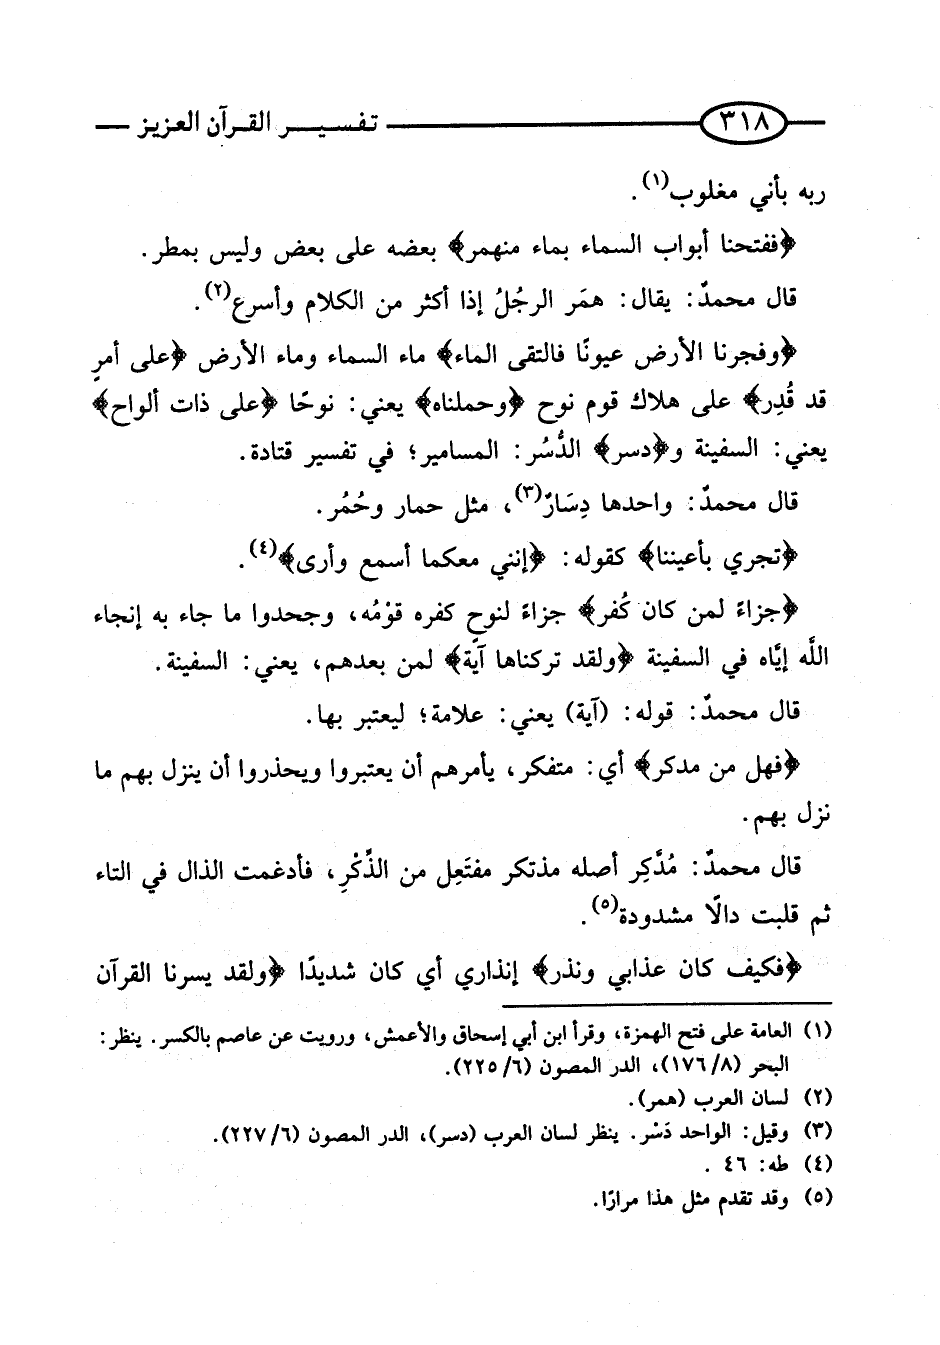 ٣١٨ تفسير القرآن العزيز
ربه بأني مغلوب(١).
﴿ففتحنا أبواب السماء بماء منهمر﴾ بعضه على بعض وليس بمطر.
قال محمدٌ: يقال: همَر الرجُلُ إذا أكثر من الكلام وأسرع(٢).
﴿وفجرنا الأرض عيونًا فالتقى الماء﴾ ماء السماء وماء الأرض ﴿على أمرٍ
قد قُدِر﴾ على هلاك قوم نوح ﴿وحملناه﴾ يعني: نوحًا ﴿على ذات ألواح﴾
يعني: السفينة و﴿دسر﴾ الدُّسُر: المسامير؛ في تفسير قتادة.
قال محمدٌ: واحدها دِسَارٌ(٣)، مثل حمار وحُمُر.
﴿تجري بأعيننا﴾ كقوله: ﴿إنني معكما أسمع وأرى﴾(٤).
﴿جزاءً لمن كان كُفر﴾ جزاءً لنوحٍ كفره قوْمُه، وجحدوا ما جاء به إنجاء
اللَّه إيَّاه في السفينة ﴿ولقد تركناها آية﴾ لمن بعدهم، يعني: السفينة.
قال محمدٌ: قوله: (آية) يعني: علامة؛ ليعتبر بها.
﴿فهل من مدكر﴾ أي: متفكر، يأمرهم أن يعتبروا ويحذروا أن ينزل بهم ما
نزل بهم.
قال محمدٌ: مُدَّكِر أصله مذتكر مفتَعِل من الذِّكْرِ، فأدغمت الذال في التاء
ثم قلبت دالًا مشدودة(٥).
﴿فكيف كان عذابي ونذر﴾ إنذاري أي كان شديدًا ﴿ولقد يسرنا القرآن
(١) العامة على فتح الهمزة، وقرأ ابن أبي إسحاق والأعمش، ورويت عن عاصم بالكسر. ينظر:
البحر (٨/١٧٦)، الدر المصون (٦/٢٢٥).
(٢) لسان العرب (همر).
(٣) وقيل: الواحد دَسْر. ينظر لسان العرب (دسر)، الدر المصون (٦/٢٢٧).
(٤) طه: ٤٦ .
(٥) وقد تقدم مثل هذا مرارًا.